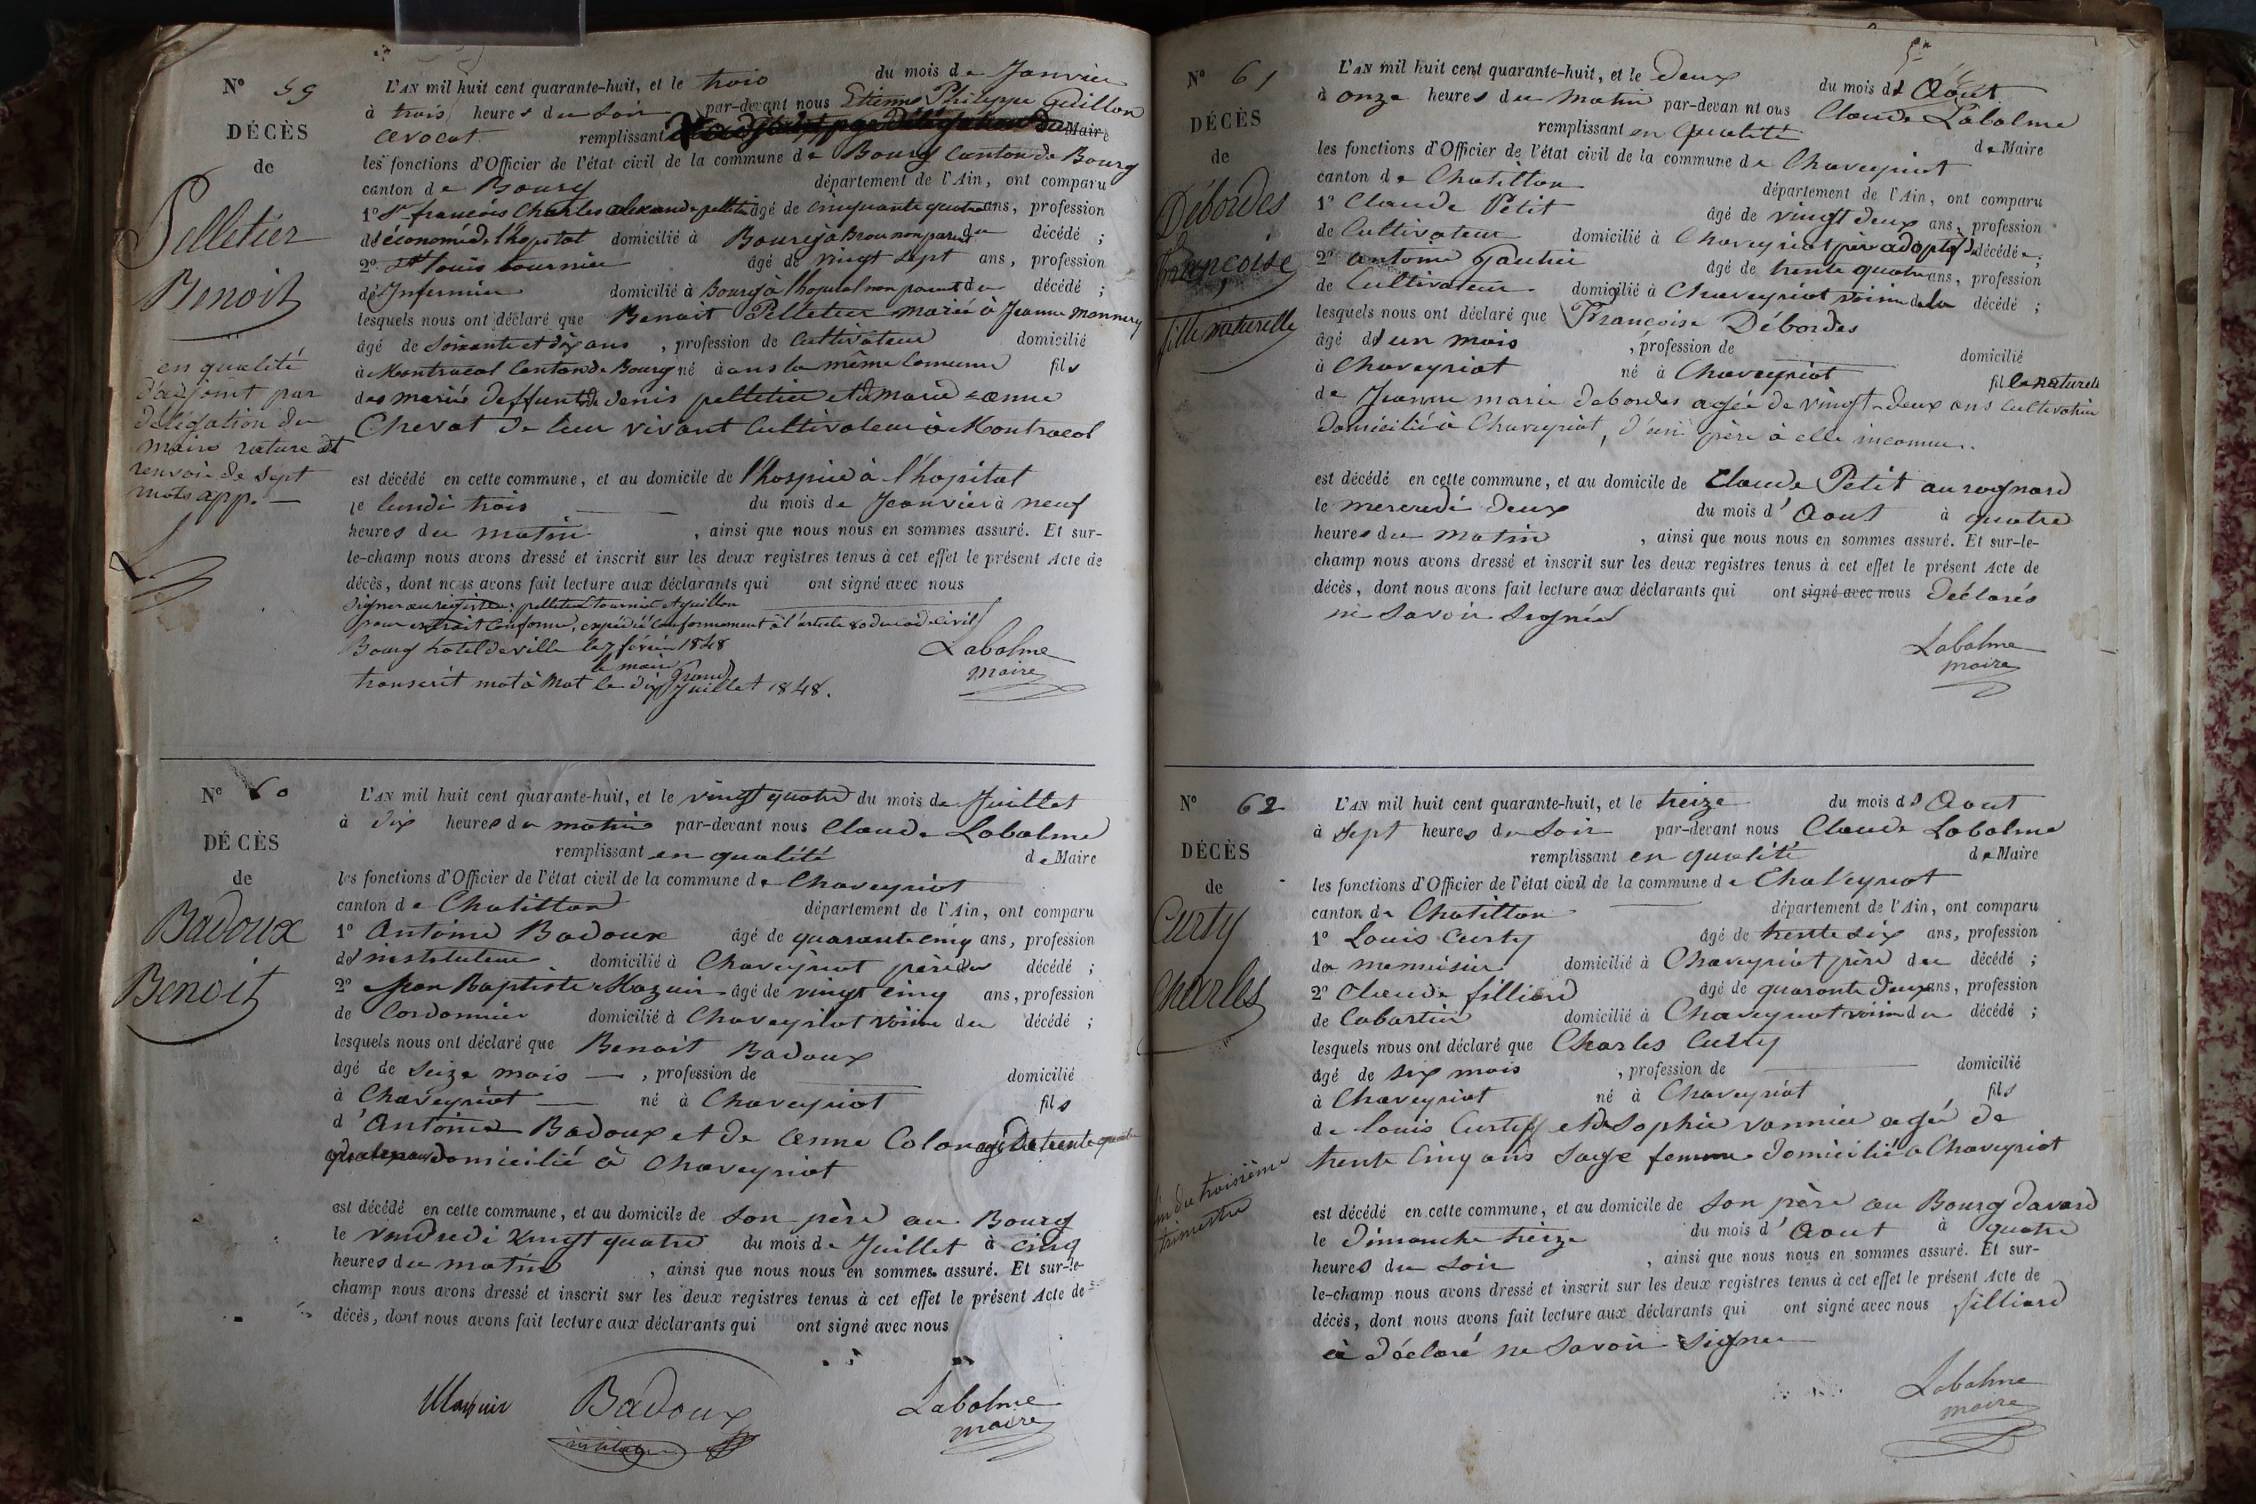 N° 59
DÉCÈS
de
Pelletier
Benoit
en qualité
d'adjoint par
délégation du
maire rature et
renvoi de sept
mots app.
L'AN mil huit cent quarante-huit, et le trois du mois de Janvier
à trois heures du soir par-devant nous Etienne Philippe Guillon
avocat remplissant Maire
les fonctions d'Officier de l'état civil de la commune de Bourg Canton de Bourg
canton de Bourg département de l'Ain, ont comparu
1° Sr françois Charles alexandre pelletier âgé de cinquante quatre ans, profession
d'économe de l'hopital domicilié à Bourg à Brou non parent du décédé ;
2° Sr louis tournier âgé de vingt sept ans, profession
d'Infirmier domicilié à Bourg à l'hopital non parent du décédé ;
lesquels nous ont déclaré que Benoit Pelletier marié à Jeanne Monnery
âgé de soixante et dix ans , profession de Cultivateur domicilié
à Montracol Canton de Bourg né à dans la même Commune fils
des mariés deffunts de denis pelletier et de marie anne
Chevat de leur vivant Cultivateur à Montracol
est décédé en cette commune, et au domicile de l'hospice à l'hopital
le lundi trois du mois de Janvier à neuf
heures du matin , ainsi que nous nous en sommes assuré. Et sur-
le-champ nous avons dressé et inscrit sur les deux registres tenus à cet effet le présent Acte de
décès, dont nous avons fait lecture aux déclarants qui ont signé avec nous
signer au registre : pelletier tournier et guillon
pour extrait Conforme, expédié Conformément à l'article 80 du code Civil
Bourg hotel de ville le 7 févrié 1848
le maire Grand
transcrit mot à mot le dix Juillet 1848.
Labalme
maire
N° 60
DÉCÈS
de
Badoux
Benoit
L'AN mil huit cent quarante-huit, et le vingt quatre du mois de Juillet
à dix heures du matin par-devant nous Claude Labalme
remplissant en qualité de Maire
les fonctions d'Officier de l'état civil de la commune de Chaveyriat
canton de Chatillon département de l'Ain, ont comparu
1° Antoine Badoux âgé de quarante cinq ans, profession
d'instituteur domicilié à Chaveyriat père du décédé ;
2° Jean Baptiste Mazuir âgé de vingt cinq ans, profession
de Cordonnier domicilié à Chaveyriat voisin du décédé ;
lesquels nous ont déclaré que Benoit Badoux
âgé de seize mois , profession de domicilié
à Chaveyriat né à Chaveyriat fils
d'Antoine Badoux et de anne Colon agé de trente quatre
domicilié à Chaveyriat
est décédé en cette commune, et au domicile de son père au Bourg
le vendredi vingt quatre du mois de Juillet à cinq
heures du matin , ainsi que nous nous en sommes assuré. Et sur-le-
champ nous avons dressé et inscrit sur les deux registres tenus à cet effet le présent Acte de
décès, dont nous avons fait lecture aux déclarants qui ont signé avec nous
Mazuir Badoux Labalme
instituteur maire
N° 61
DÉCÈS
de
Débordes
françoise
fille naturelle
L'AN mil huit cent quarante-huit, et le deux du mois d'Août
à onze heures du matin par-devan nt ous Claude Labalme
remplissant en qualité de Maire
les fonctions d'Officier de l'état civil de la commune de Chaveyriat
canton de Chatillon département de l'Ain, ont comparu
1° Claude Petit âgé de vingt deux ans, profession
de Cultivateur domicilié à Chaveyriat père adoptif décédée ;
2° antoine Gautier âgé de trente quatre ans, profession
de Cultivateur domicilié à Chaveyriat voisin de la décédé ;
lesquels nous ont déclaré que Françoise Débordes
âgé d'un mois , profession de domicilié
à Chaveyriat né à Chaveyriat fille naturele
de Jeanne marie debordes agée de vingt-deux ans Cultivatrice
domicilié à Chaveyriat, d'un père à elle inconnu.
est décédé en cette commune, et au domicile de Claude Petit au rognard
le mercredi deux du mois d'Aout à quatre
heures du matin , ainsi que nous nous en sommes assuré. Et sur-le-
champ nous avons dressé et inscrit sur les deux registres tenus à cet effet le présent Acte de
décès, dont nous avons fait lecture aux déclarants qui ont signé avec nous déclarés
ne savoir signer
Labalme
maire
N° 62
DÉCÈS
de
Curty
Charles
fin du troisième
trimestre
L'AN mil huit cent quarante-huit, et le treize du mois d'Aout
à sept heures du soir par-devant nous Claude Labalme
remplissant en qualité de Maire
les fonctions d'Officier de l'état civil de la commune de Chaveyriat
canton de Chatillon département de l'Ain, ont comparu
1° Louis Curty âgé de trente six ans, profession
de mennisier domicilié à Chaveyriat père du décédé ;
2° Claude filliard âgé de quarante deux ans, profession
de Cabartier domicilié à Chaveyriat voisin du décédé ;
lesquels nous ont déclaré que Charles Curty
âgé de six mois , profession de domicilié
à Chaveyriat né à Chaveyriat fils
de Louis Curty et de Sophie vannier agé de
trente Cinq ans sage femme domicilié à Chaveyriat
est décédé en cette commune, et au domicile de son père au Bourg davard
le dimanche treize du mois d'Aout à quatre
heures du soir , ainsi que nous nous en sommes assuré. Et sur-
le-champ nous avons dressé et inscrit sur les deux registres tenus à cet effet le présent Acte de
décès, dont nous avons fait lecture aux déclarants qui ont signé avec nous filliard
à déclaré ne savoir signer
Labalme
maire